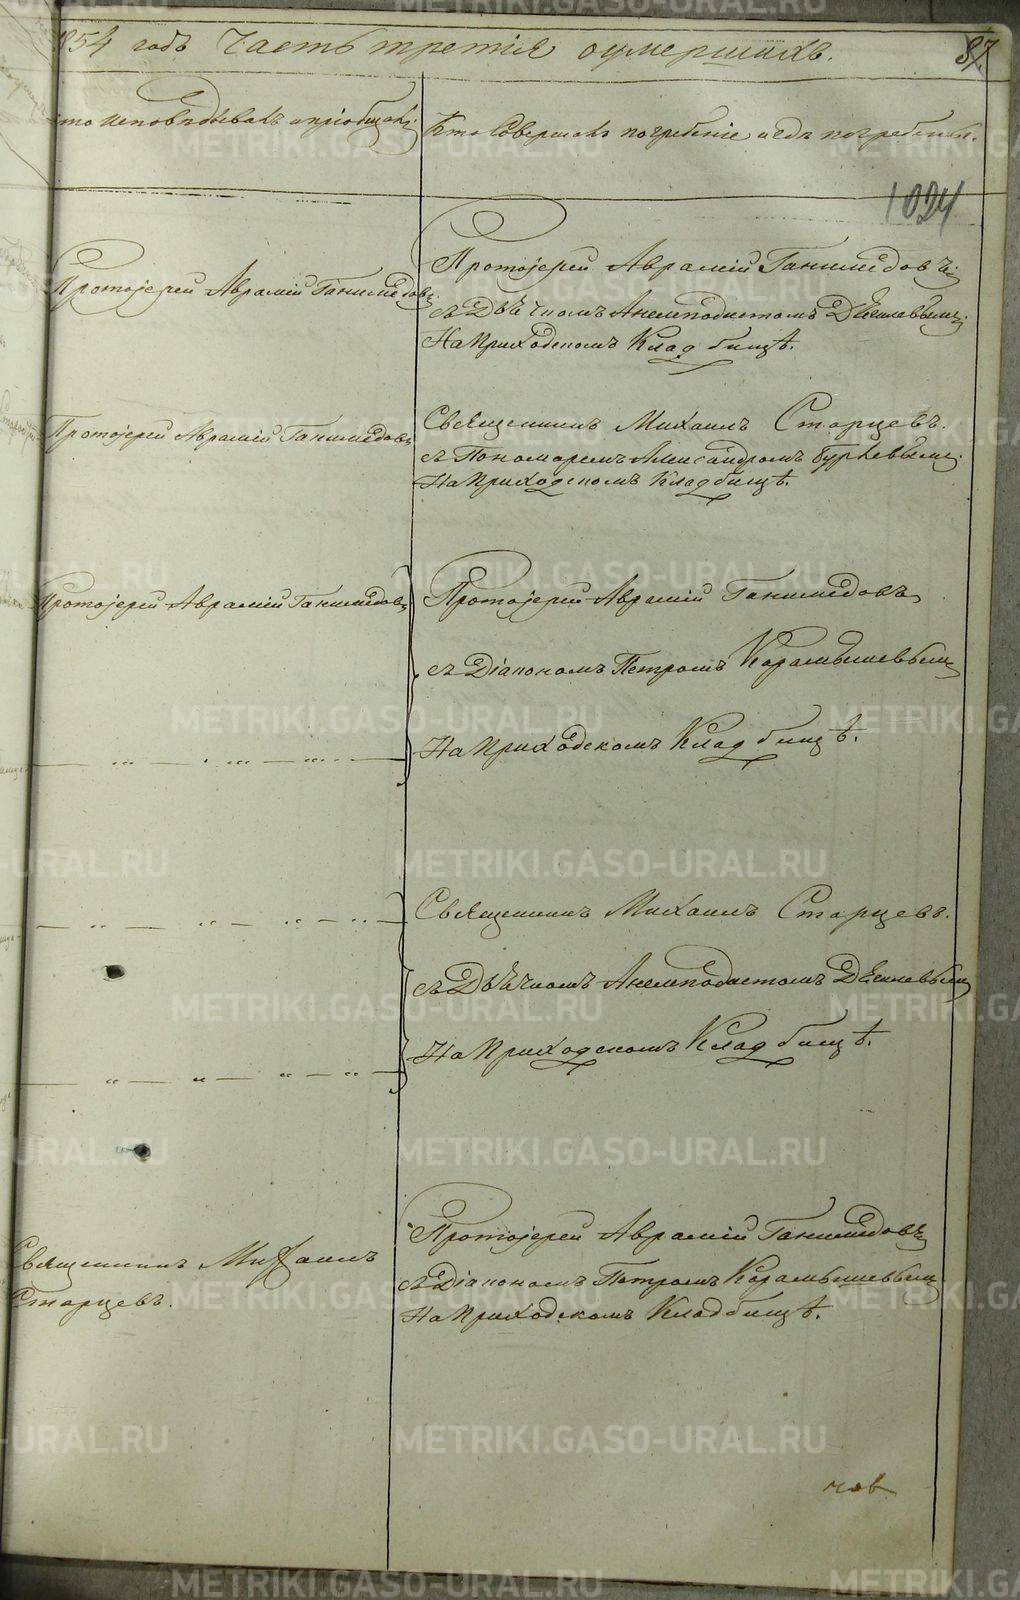 854 годъ Часть третія оумершихъ.
87.
кто исповѣдывалъ и пріобщалъ;
Кто Совершалъ погребеніе и гдѣ погребены.
1024
Протоіерей Аврамій Ганимѣдовъ;
Протоіерей Аврамій Ганимѣдовъ;
съ Дьячкомъ Анемподистомъ
На Приходскомъ Кладбищѣ.
Протоіерей Аврамій Ганимѣдовъ
Священникъ Михаилъ Старцевъ.
съ Пономаремъ Александромъ
На Приходскомъ Кладбищѣ.
Протоіерей Аврамій Ганимѣдовъ
Протоіерей Аврамій Ганимѣдовъ
съ Діакономъ Петромъ Карамышевымъ
На Приходскомъ Кладбищѣ.
Священникъ Михаилъ Старцевъ.
съ Дьячкомъ Анемподистомъ
На Приходскомъ Кладбищѣ.
Священникъ Михаилъ
Старцевъ.
Протоіерей Аврамій Ганимѣдовъ
съ Діакономъ Петромъ Карамышевымъ
На Приходскомъ Кладбищѣ.
METRIKI.GASO-URAL.RU